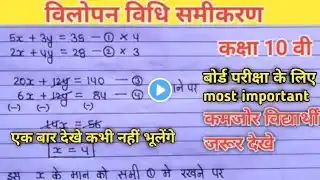 विलोपन विधि समीकरण
5x + 3y = 35 – ① × 4
2x + 4y = 28 – ② × 3
कक्षा 10 वी
बोर्ड परीक्षा के लिए
most important
20x + 12y = 140 – ③
6x + 12y = 84 – ④
पर
(-) (-) (-)
कमजोर विद्यार्थी
जरूर देखे
एक बार देखे कभी नहीं भूलेंगे
14x = 56
x = 4
इस x के मान को समी ① मे रखने पर